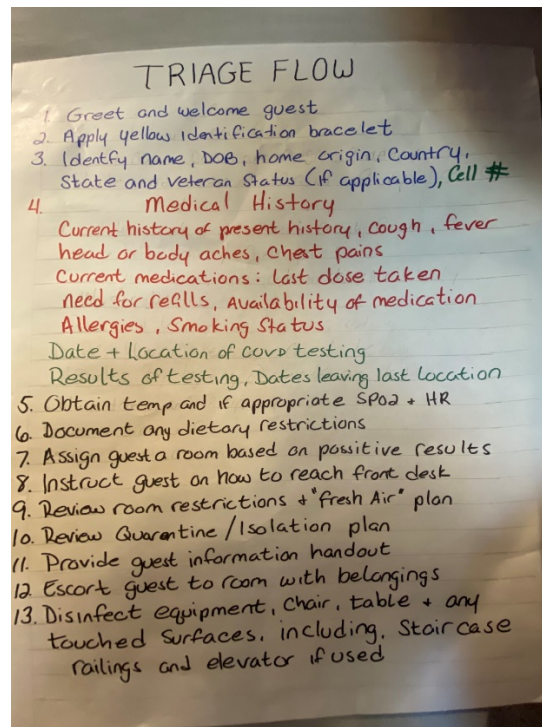 TRIAGE FLOW
1. Greet and welcome guest
2. Apply yellow Identification bracelet
3. Identfy name, DOB, home origin, Country,
State and Veteran Status (if applicable), Cell #
4. Medical History
Current history of present history, cough, fever
head or body aches, Chest pains
Current medications: Last dose taken
need for refills, Availability of medication
Allergies, Smoking Status
Date + Location of COVD testing
Results of testing, Dates leaving last location
5. Obtain temp and if appropriate SPO2 + HR
6. Document any dietary restrictions
7. Assign guest a room based on possitive results
8. Instruct guest on how to reach front desk
9. Review room restrictions + "fresh Air" plan
10. Review Quarantine / Isolation plan
11. Provide guest information handout
12 Escort guest to room with belongings
13. Disinfect equipment, Chair, table + any
touched Surfaces, including, Stair case
railings and elevator if used